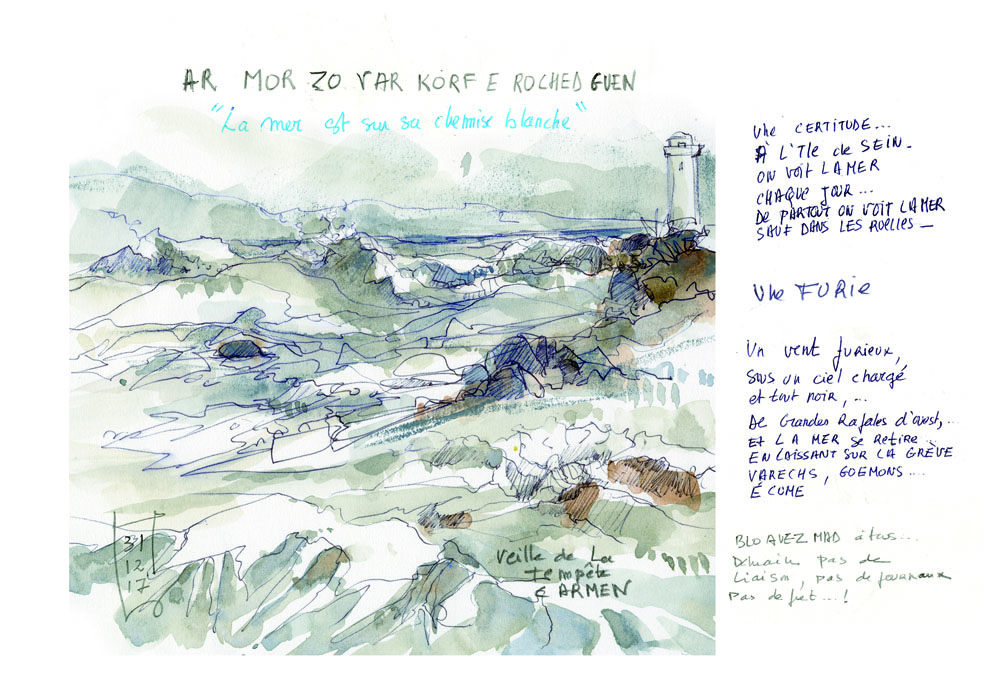 AR MOR ZO VAR KORF E ROCHED GUEN
"La mer est sur sa chemise blanche"
Une CERTITUDE...
À L'Île de SEIN.
ON VOIT LA MER
CHAQUE JOUR...
DE PARTOUT ON VOIT LA MER
SAUF DANS LES RUELLES –
Une FURIE
Un vent furieux,
sous un ciel chargé
et tout noir,...
De Grandes Rafales d'ouest,...
ET LA MER se Retire...
EN LAISSANT SUR LA GRÈVE
VARECHS, GOEMONS....
ÉCUME
BLOAVEZ MAD à tous...
Demain pas de
Liaison, pas de journaux
Pas de fret...!
31
12
17
Veille de La
Tempête
ARMEN